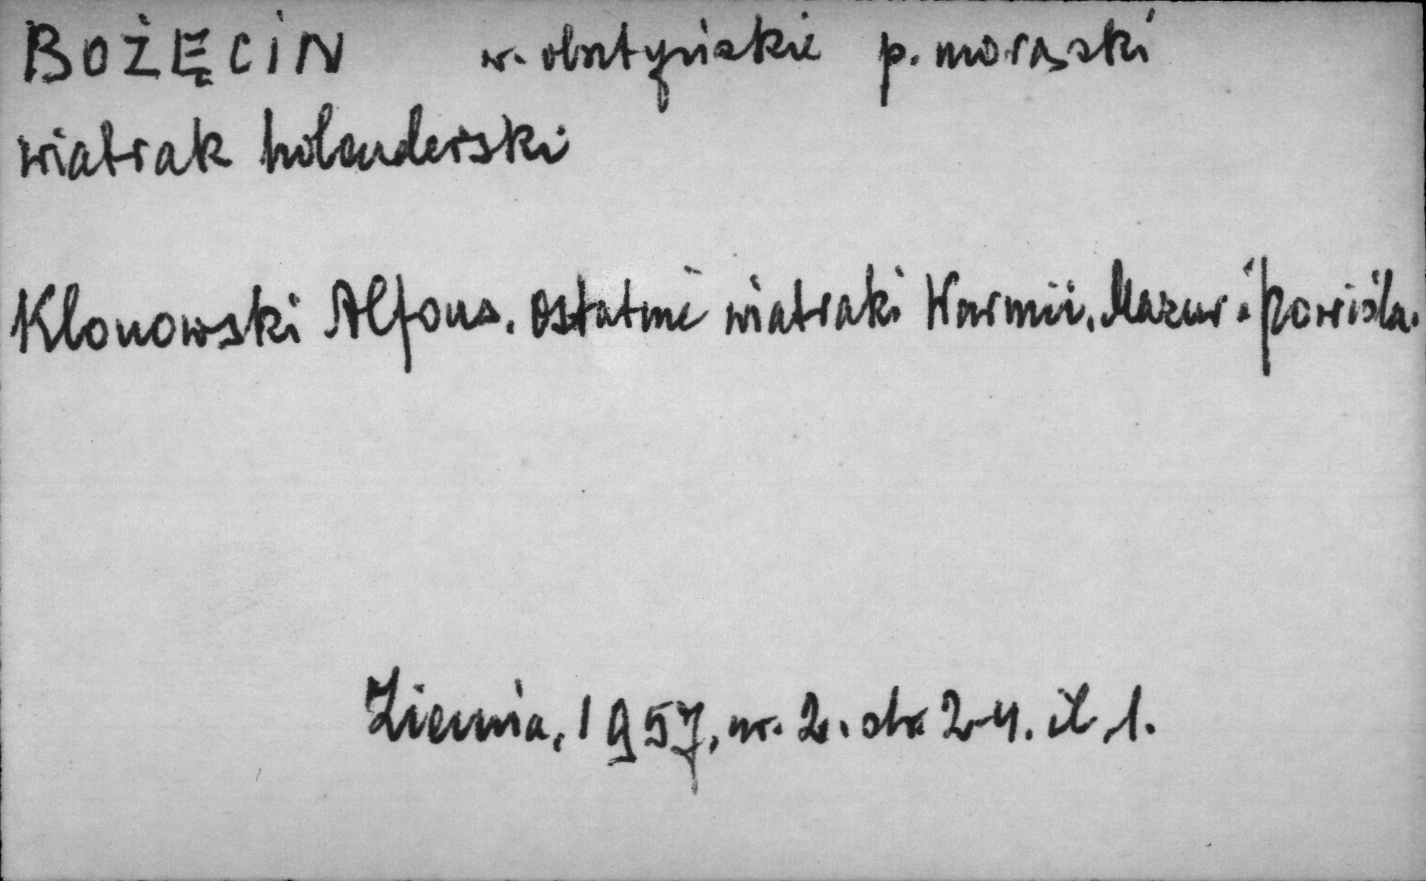 BOŻĘCIN w. olsztyńskie p. morąski
wiatrak holenderski
Klonowski Alfons. Ostatnie wiatraki Warmii, Mazur i Powiśla.
Ziemia, 1957, nr. 2. str 2-4. il. 1.